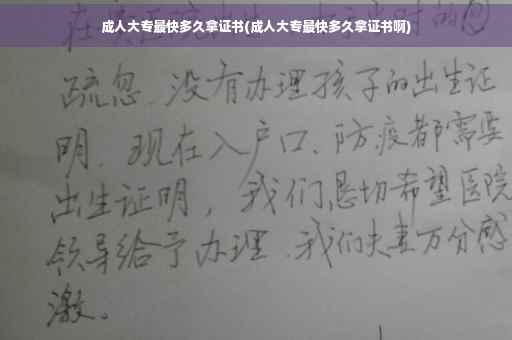 成人大专最快多久拿证书(成人大专最快多久拿证书啊)
疏忽、没有办理孩子的出生证
明、现在入户口、防疫都需要
出生证明，我们恳切希望医院
领导给予办理、我们夫妻万分感
激。